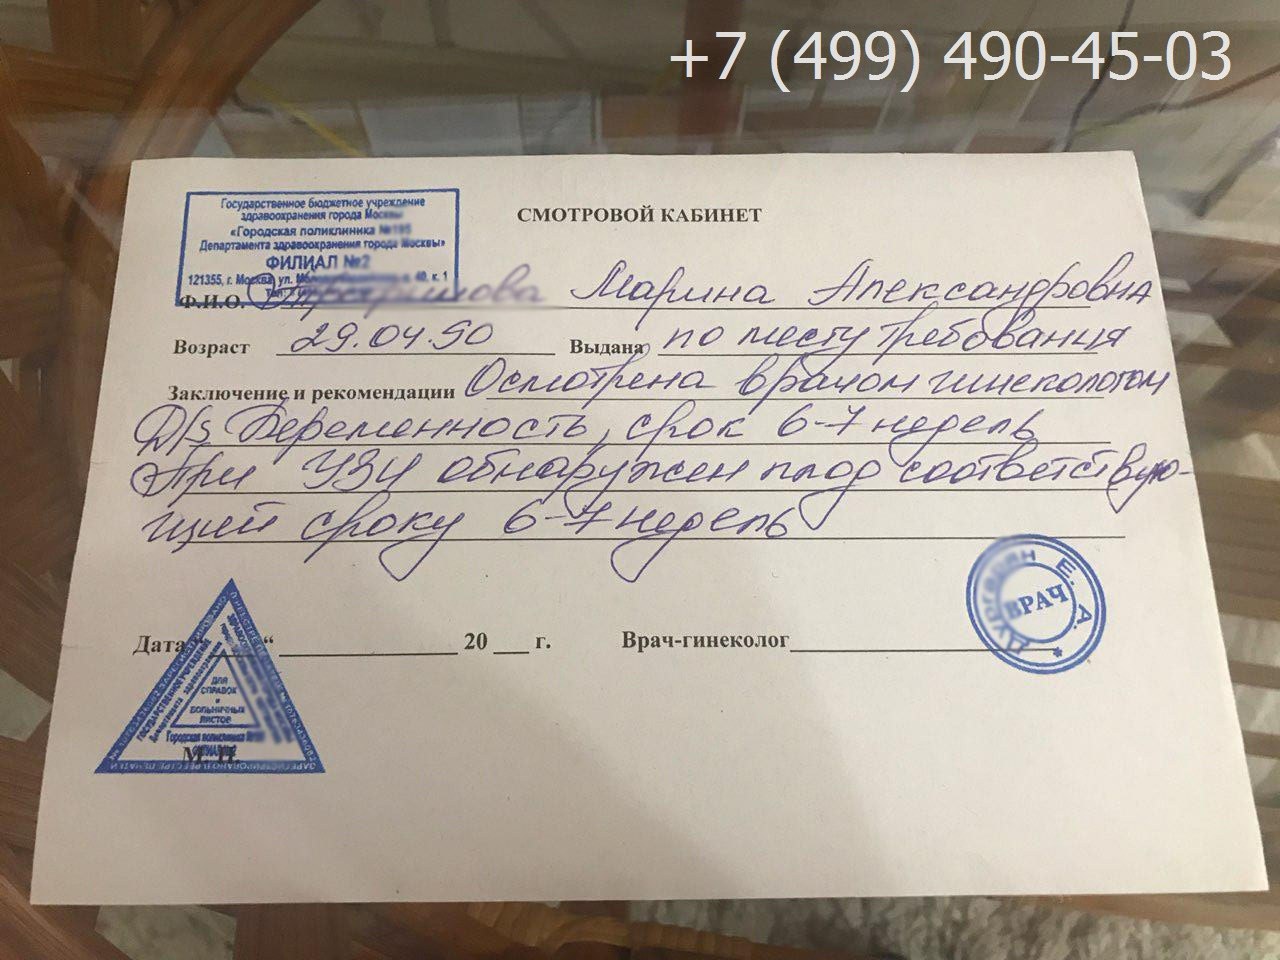 +7 (499) 490-45-03
Государственное бюджетное учреждение
здравоохранения города Москвы
«Городская поликлиника
Департамента здравоохранения города Москвы»
ФИЛИАЛ №2
121355, г. Москва, ул. 40, к. 1
СМОТРОВОЙ КАБИНЕТ
Ф.И.О. Марина Александровна
Возраст 29.04.90 Выдана по месту требования
Заключение и рекомендации Осмотрена врачом гинекологом
D/s Беременность, срок 6-7 недель
При УЗИ обнаружен плод соответствую-
щий сроку 6-7 недель
Дата “ 20 г. Врач-гинеколог
ВРАЧ
Е. А.
ДЛЯ
СПРАВОК
и
БОЛЬНИЧНЫХ
ЛИСТОВ
Городская поликлиника
М. П.